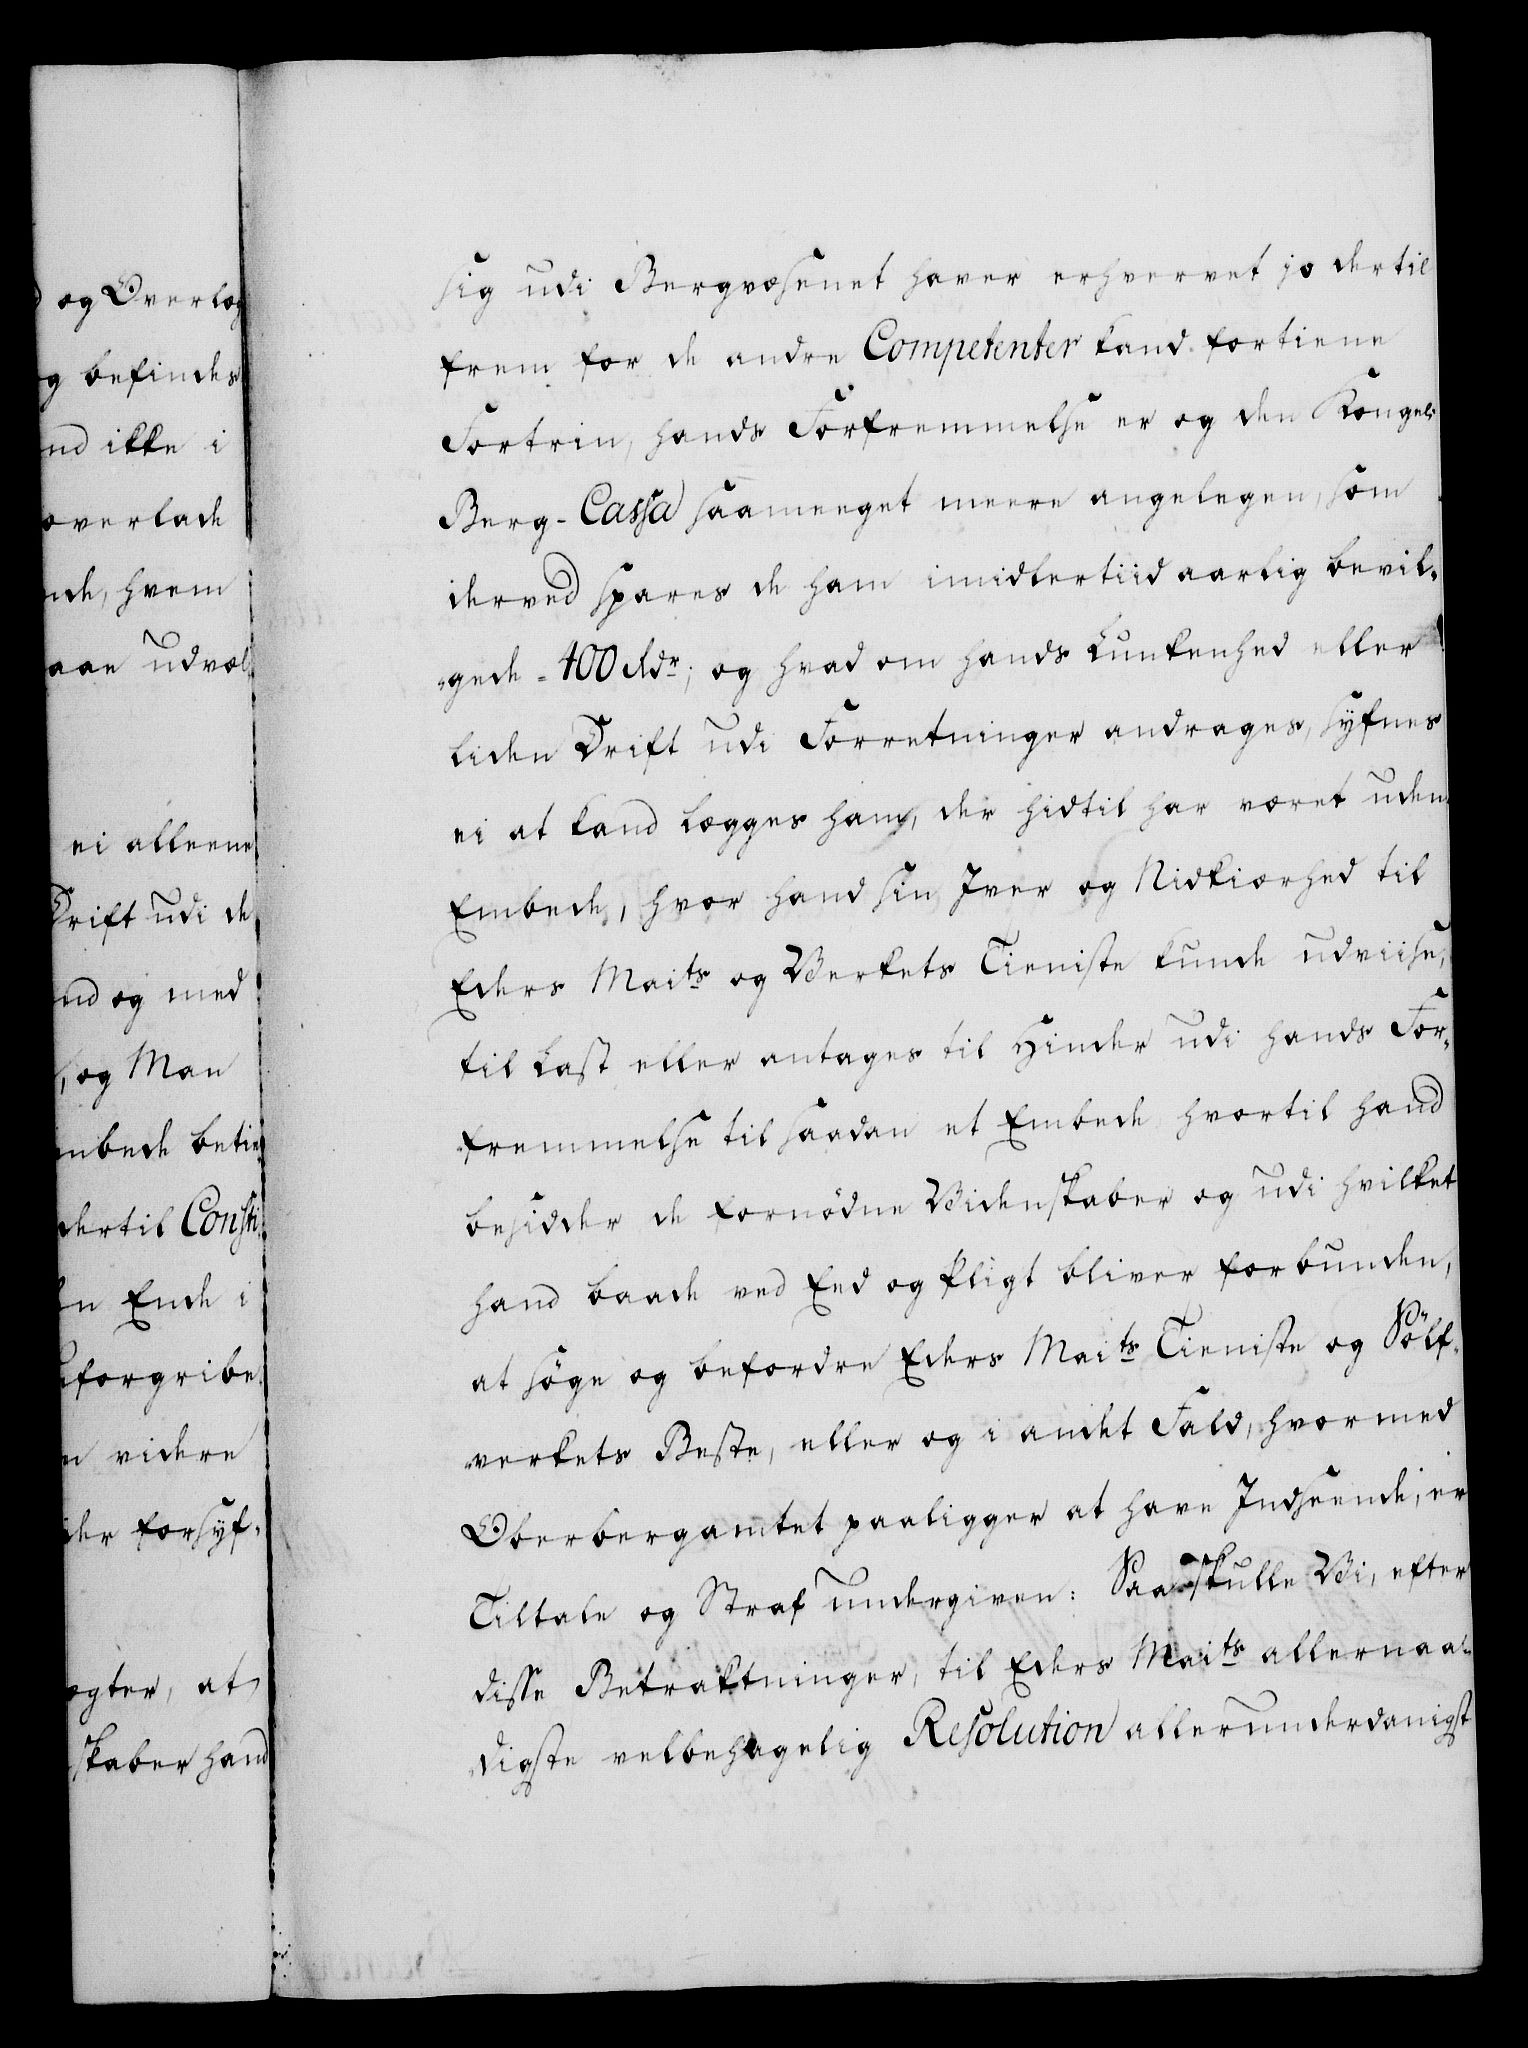 og Overlæg
g befindes
nd ikke i
overlade
nde, hvem
aae udvæl
ei alleene
Drift udi de
nd og med
, og Man
mbede betie
dertil Consti
en Ende i
uforgribe
n videre
der forsyf-
ægter, at
skaber hand
sig udi Bergvæsenet haver erhvervet jo dertil
frem for de andre Competenter kand fortiene
Fortrin, hands Forfremmelse er og den Kongel:
Berg-Cassa saameeget meere angelegen, som
derved spares de ham imidlertiid aarlig bevil-
gede - 400 Rdr; og hvad om hands Lunkenhed eller
liden Drift udi Forretninger andrages, syfnes
ei at kand lægges ham, der hidtil har været uden
Embede, hvor hand sin Iver og Nidkiærhed til
Eders Maits og Verkets Tieniste kunde udviise,
til Last eller antages til Hinder udi hands For-
fremmelse til saadan et Embede hvortil hand
besidder de fornødne Videnskaber og udi hvilket
hand baade ved Eed og Pligt bliver forbunden,
at søge og befordre Eders Maits Tieniste og Sølf-
verkets Beste, eller og i andet Fald, hvormed
Oberbergamtet paaligger at have Indseende, er
Tiltale og Straf undergiven: Saa skulle Vi, efter
disse Betraktninger, til Eders Maits allernaa-
digste velbehagelig Resolution allerunderdanigst